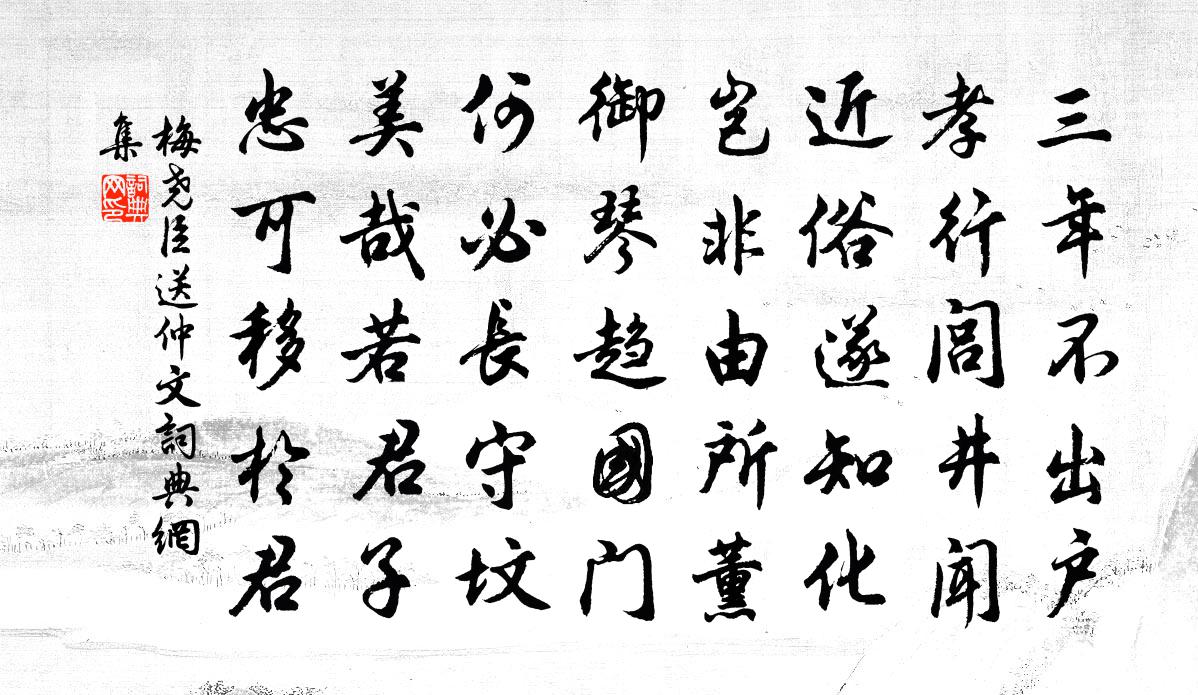 三年不出户
孝行闾井闻
近俗遂知化
岂非由所薰
御琴趋國门
何必長守坟
美哉若君子
忠可移於君
梅尧臣送仲文詞典網
集
詞典
网印